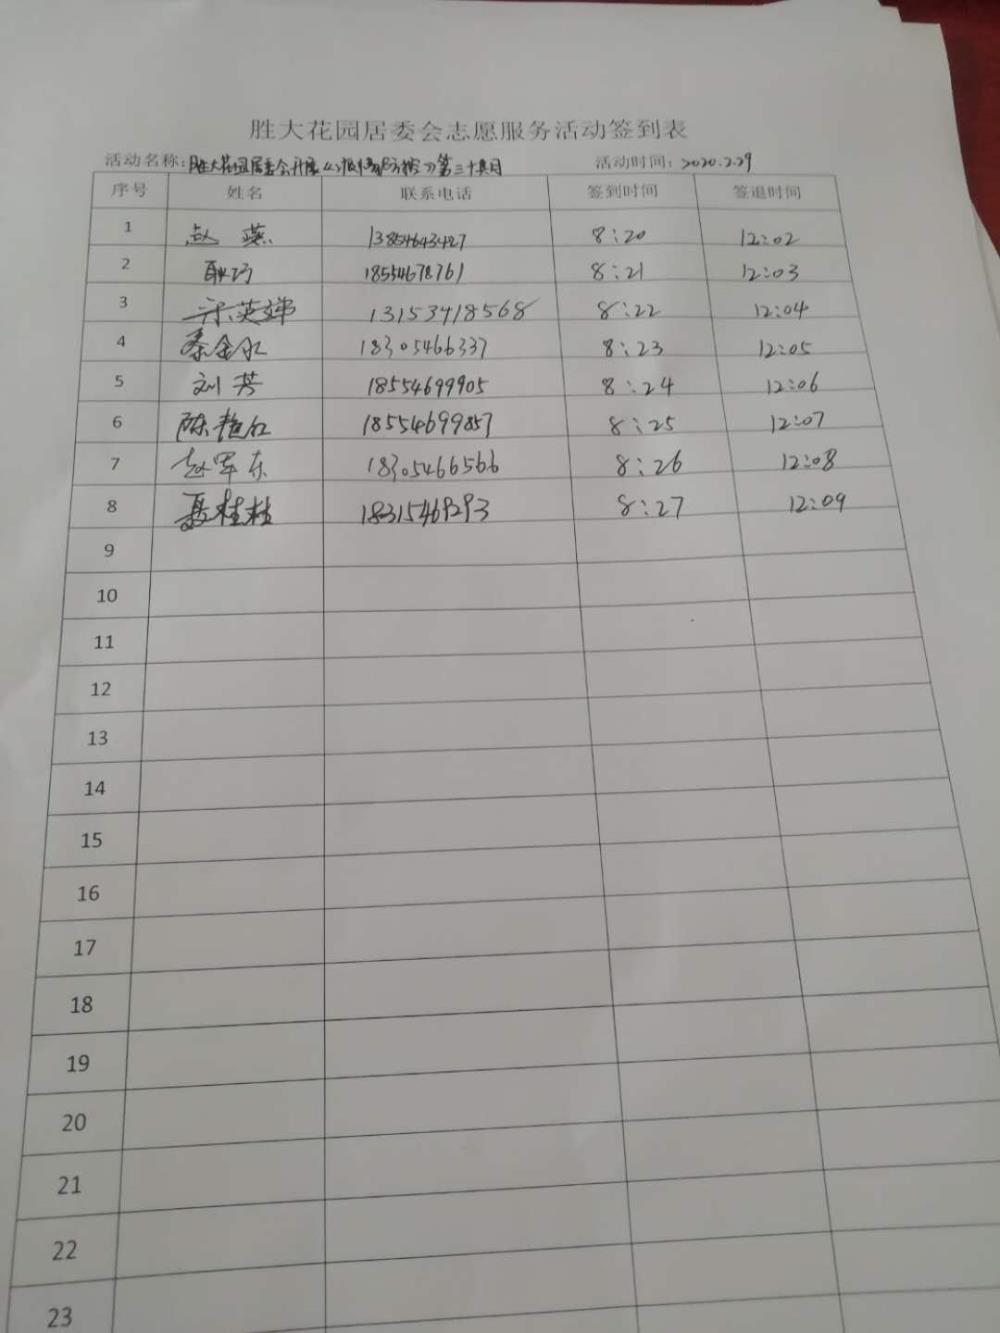 胜大花园居委会志愿服务活动签到表
活动名称：胜大花园居委会开展《疫情防控》第三十其目 活动时间：2020.2.29
序号 姓名 联系电话 签到时间 签退时间
1 赵燕 13854643427 8:20 12:02
2 耿巧 18554678761 8:21 12:03
3 宋英婵 13153418568 8:22 12:04
4 秦金永 18305466337 8:23 12:05
5 刘芳 18554699905 8:24 12:06
6 陈艳红 18554699857 8:25 12:07
7 赵军东 18305466566 8:26 12:08
8 聂桂枝 18315469293 8:27 12:09
9
10
11
12
13
14
15
16
17
18
19
20
21
22
23